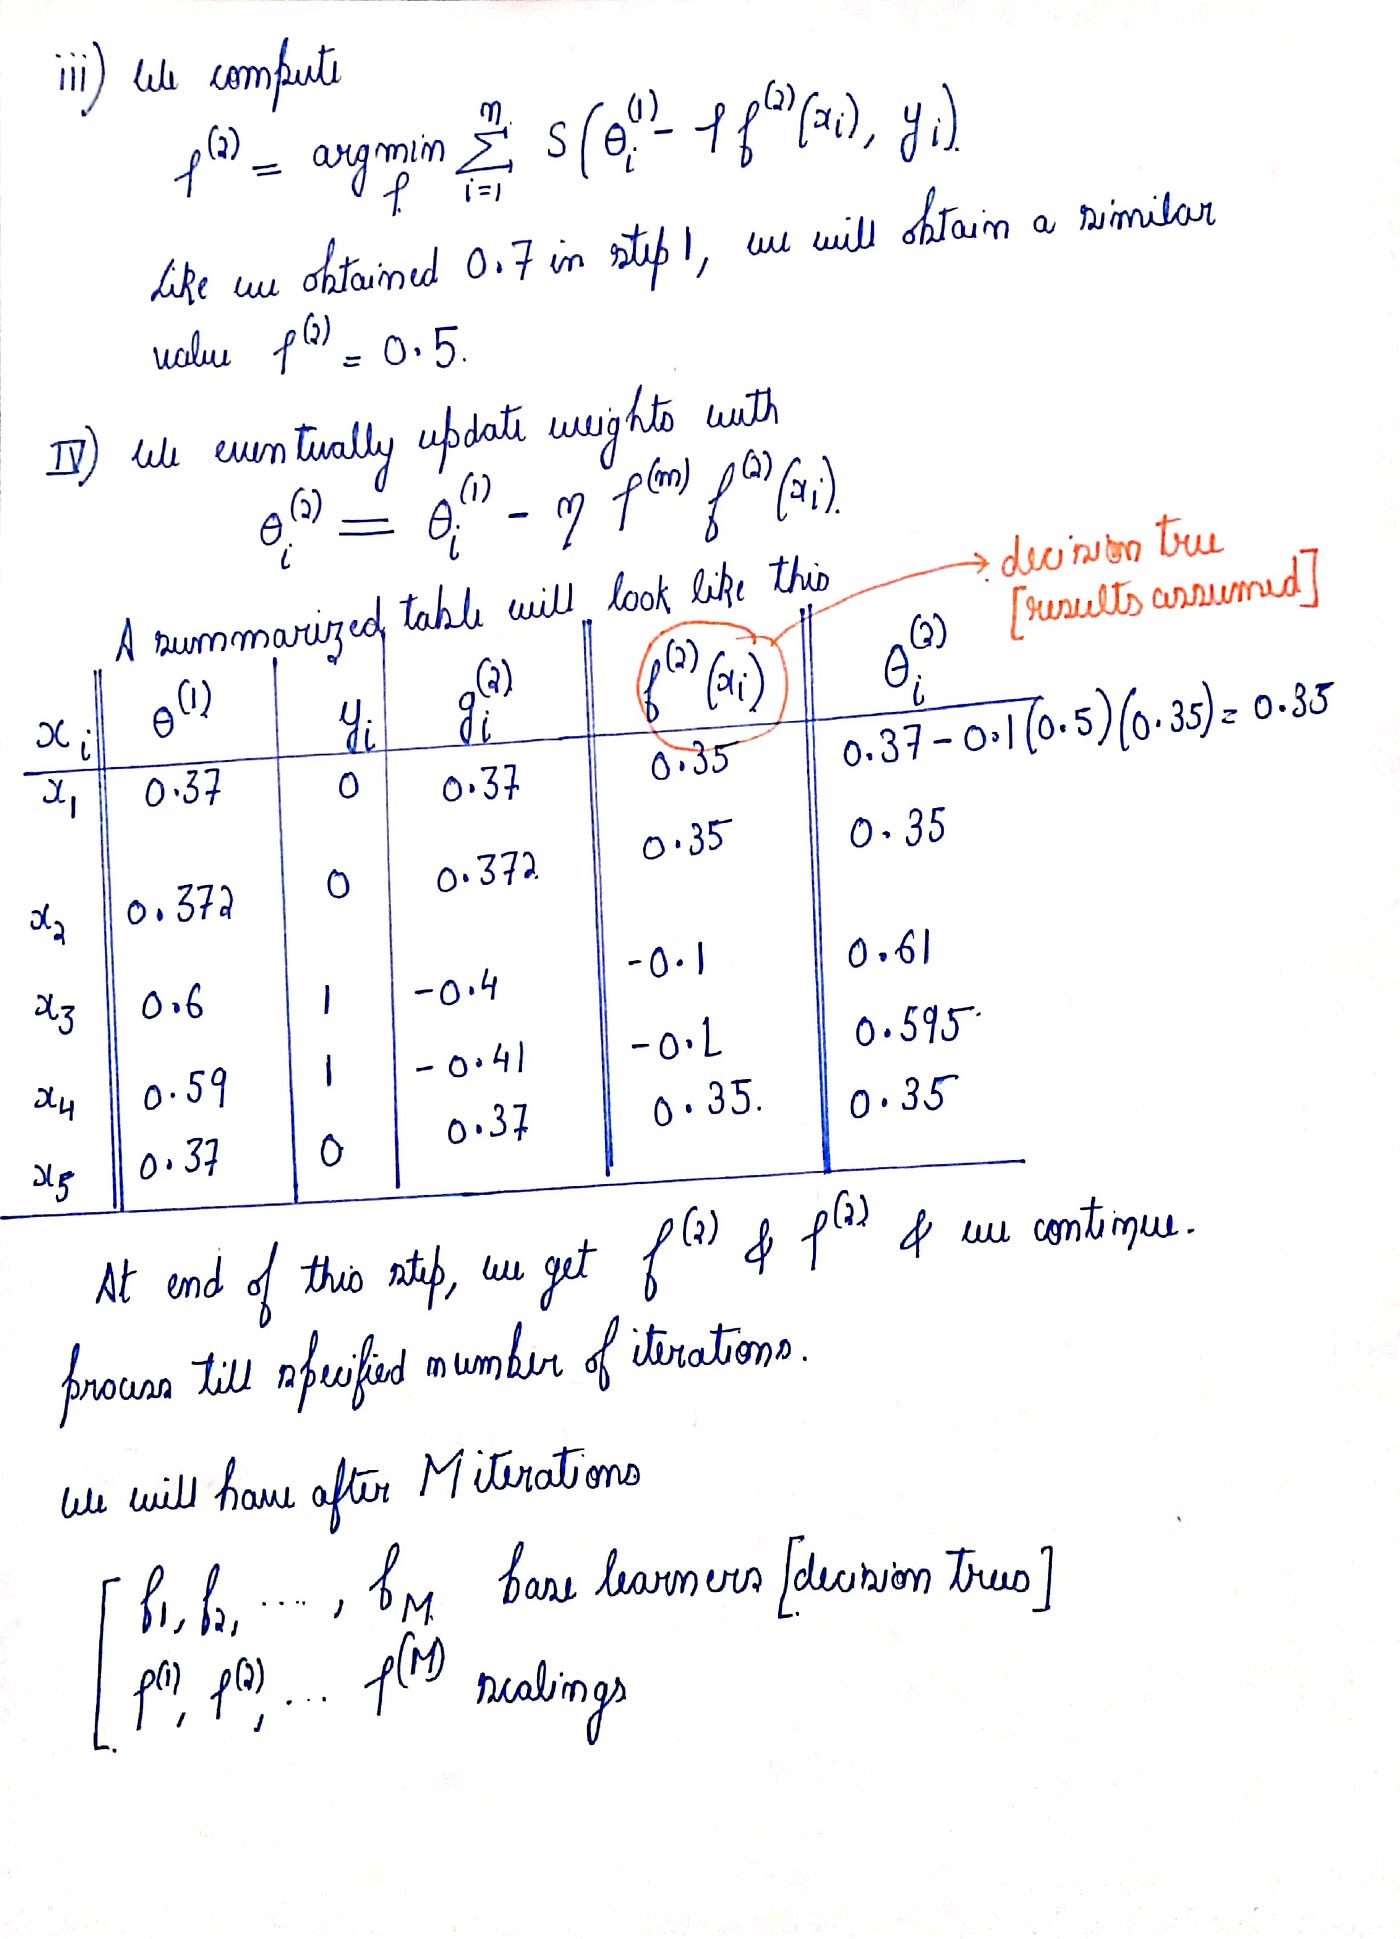 iii) We compute
ρ^(2) = argmin_ρ Σ_{i=1}^{n} S(θ_i^(1) - ρ f^(2)(x_i), y_i).
Like we obtained 0.7 in step 1, we will obtain a similar
value ρ^(2) = 0.5.
IV) We eventually update weights with
θ_i^(2) = θ_i^(1) - η ρ^(m) f^(2)(x_i).
→ decision tree
[results assumed]
A summarized table will look like this
x_i | θ^(1) | y_i | g_i^(2) | f^(2)(x_i) | θ_i^(2)
x_1 | 0.37 | 0 | 0.37 | 0.35 | 0.37 - 0.1(0.5)(0.35) = 0.35
x_2 | 0.372 | 0 | 0.372 | 0.35 | 0.35
x_3 | 0.6 | 1 | -0.4 | -0.1 | 0.61
x_4 | 0.59 | 1 | -0.41 | -0.1 | 0.595
x_5 | 0.37 | 0 | 0.37 | 0.35. | 0.35
At end of this step, we get f^(2) & ρ^(2) & we continue.
process till specified number of iterations.
We will have after M iterations
f_1, f_2, ...., f_M base learners [decision trees]
ρ^(1), ρ^(2), ... ρ^(M) scalings